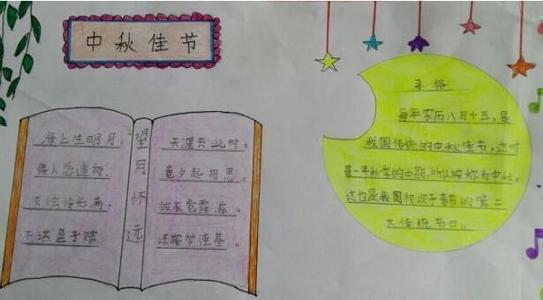 中秋佳节
望月怀远
海上生明月。
人怨遥夜
满
不堪盈手赠
天涯共此时。
竟夕起相思。
觉露滋。
还寝梦佳
习俗
每年农历八月十五,是
我国传统的中秋佳节,这时
是一年秋季的中期,所以被称为中秋。
这也是我国仅次于春节的第二
大传统节日。